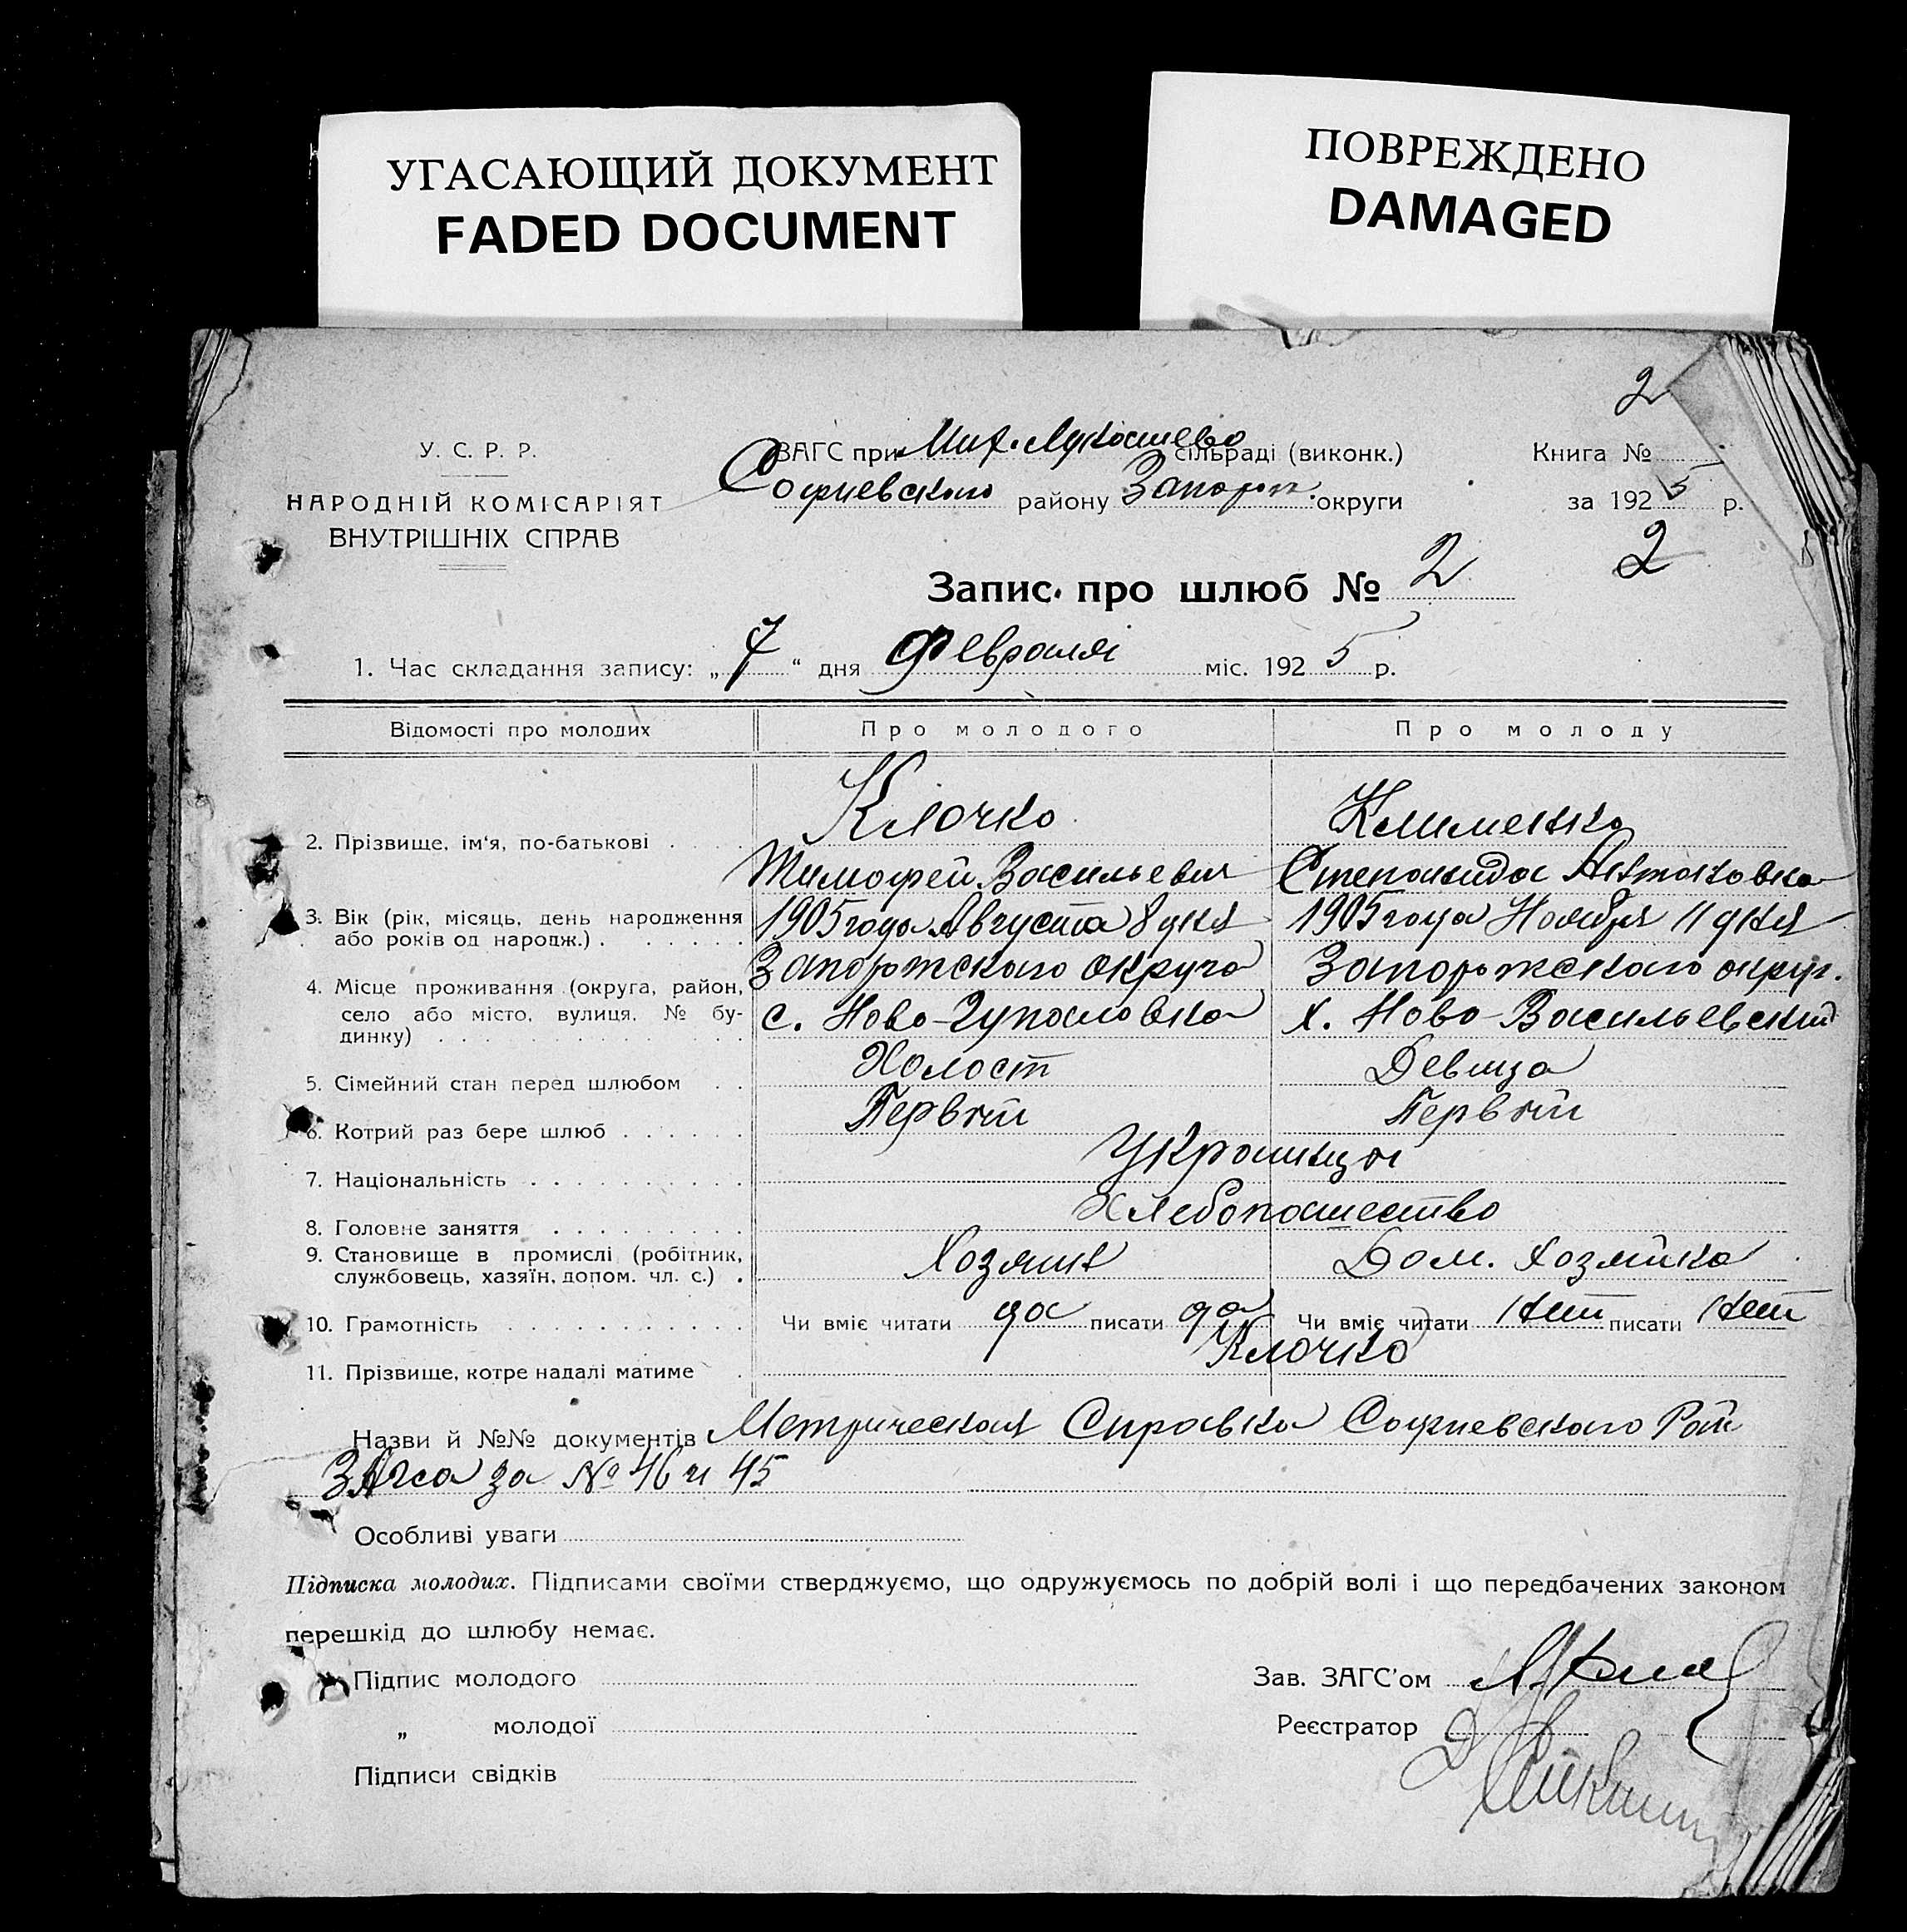 УГАСАЮЩИЙ ДОКУМЕНТ
FADED DOCUMENT
ПОВРЕЖДЕНО
DAMAGED
2
У. С. Р. Р.
НАРОДНІЙ КОМІСАРІЯТ
ВНУТРІШНІХ СПРАВ
ЗАГС при Мих. Лукашево сільраді (виконк.)
Софиевского району Запорож. округи
Книга №
за 1925 р.
2
Запис про шлюб № 2
1. Час складання запису: „7“ дня Февраля міс. 1925 р.
Відомості про молодих Про молодого Про молоду
2. Прізвище, ім'я, по-батькові . . . Клочко Клименко
Тимофей Васильевич Степанида Антоновна
3. Вік (рік, місяць, день народження 1905 года Августа 8 дня 1905 года Ноября 11 дня
або років од народж.) . . . . . . .
4. Місце проживання (округа, район, Запорожского округа Запорожского округ.
село або місто, вулиця, № бу- с. Ново-Гупаловка х. Ново-Васильевский
динку) . . . . . . . . . . . . .
5. Сімейний стан перед шлюбом . . Холост Девица
6. Котрий раз бере шлюб . . . . . . Первый Первый
7. Національність . . . . . . . . . . Украинцы
8. Головне заняття . . . . . . . . . Хлебопашество
9. Становище в промислі (робітник, Хозяин Дом. хозяйка
службовець, хазяїн, допом. чл. с.) .
10. Грамотність . . . . . . . . . . . Чи вміє читати да писати да Чи вміє читати нет писати нет
11. Прізвище, котре надалі матиме . Клочко
Назви й №№ документів Метрическая Справка Софиевского Рай
ЗАгса за № 46 и 45
Особливі уваги
Підписка молодих. Підписами своїми стверджуємо, що одружуємось по добрій волі і що передбачених законом
перешкід до шлюбу немає.
Підпис молодого
„ молодої
Підписи свідків
Зав. ЗАГС'ом
Реєстратор